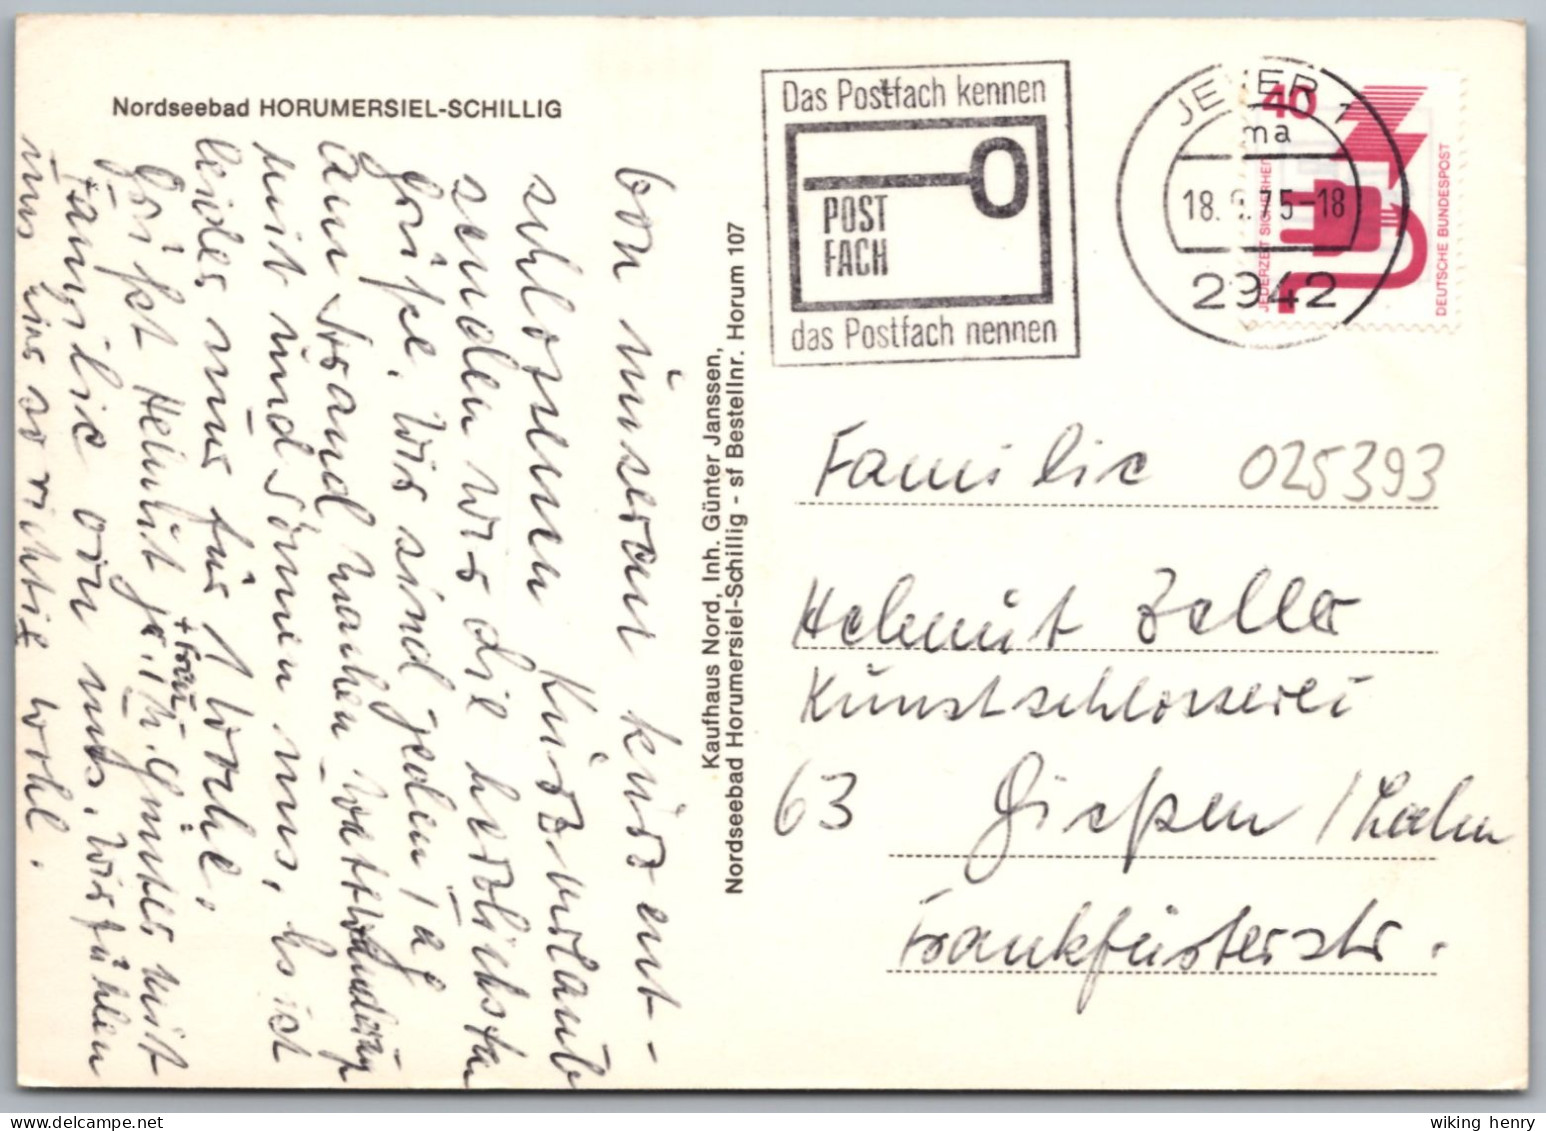 Nordseebad HORUMERSIEL-SCHILLIG
Von unserem kurz ent-
schlossenen Kurzurlaub
senden wir die herzlichsten
Grüße. Wir sind jeden Tag
am Strand machen Wattwanderung
mit und sonnen uns. Es ist
leider nur für 1 Woche.
Grüßt Helmut Günter mit
+ Frau
Familie von uns. Wir fühlen
uns hier so richtig wohl.
Kaufhaus Nord, Inh. Günter Janssen,
Nordseebad Horumersiel-Schillig - sf Bestellnr. Horum 107
Das Postfach kennen
POST
FACH
das Postfach nennen
JEVER 1
ma
18. 75-18
2942
40
JEDERZEIT SICHERHEIT
DEUTSCHE BUNDESPOST
Familie 025393
Helmut Zeller
Kunstschlosserei
63 Gießen / Lahn
Frankfurterstr.
wiking henry
www.delcampe.net